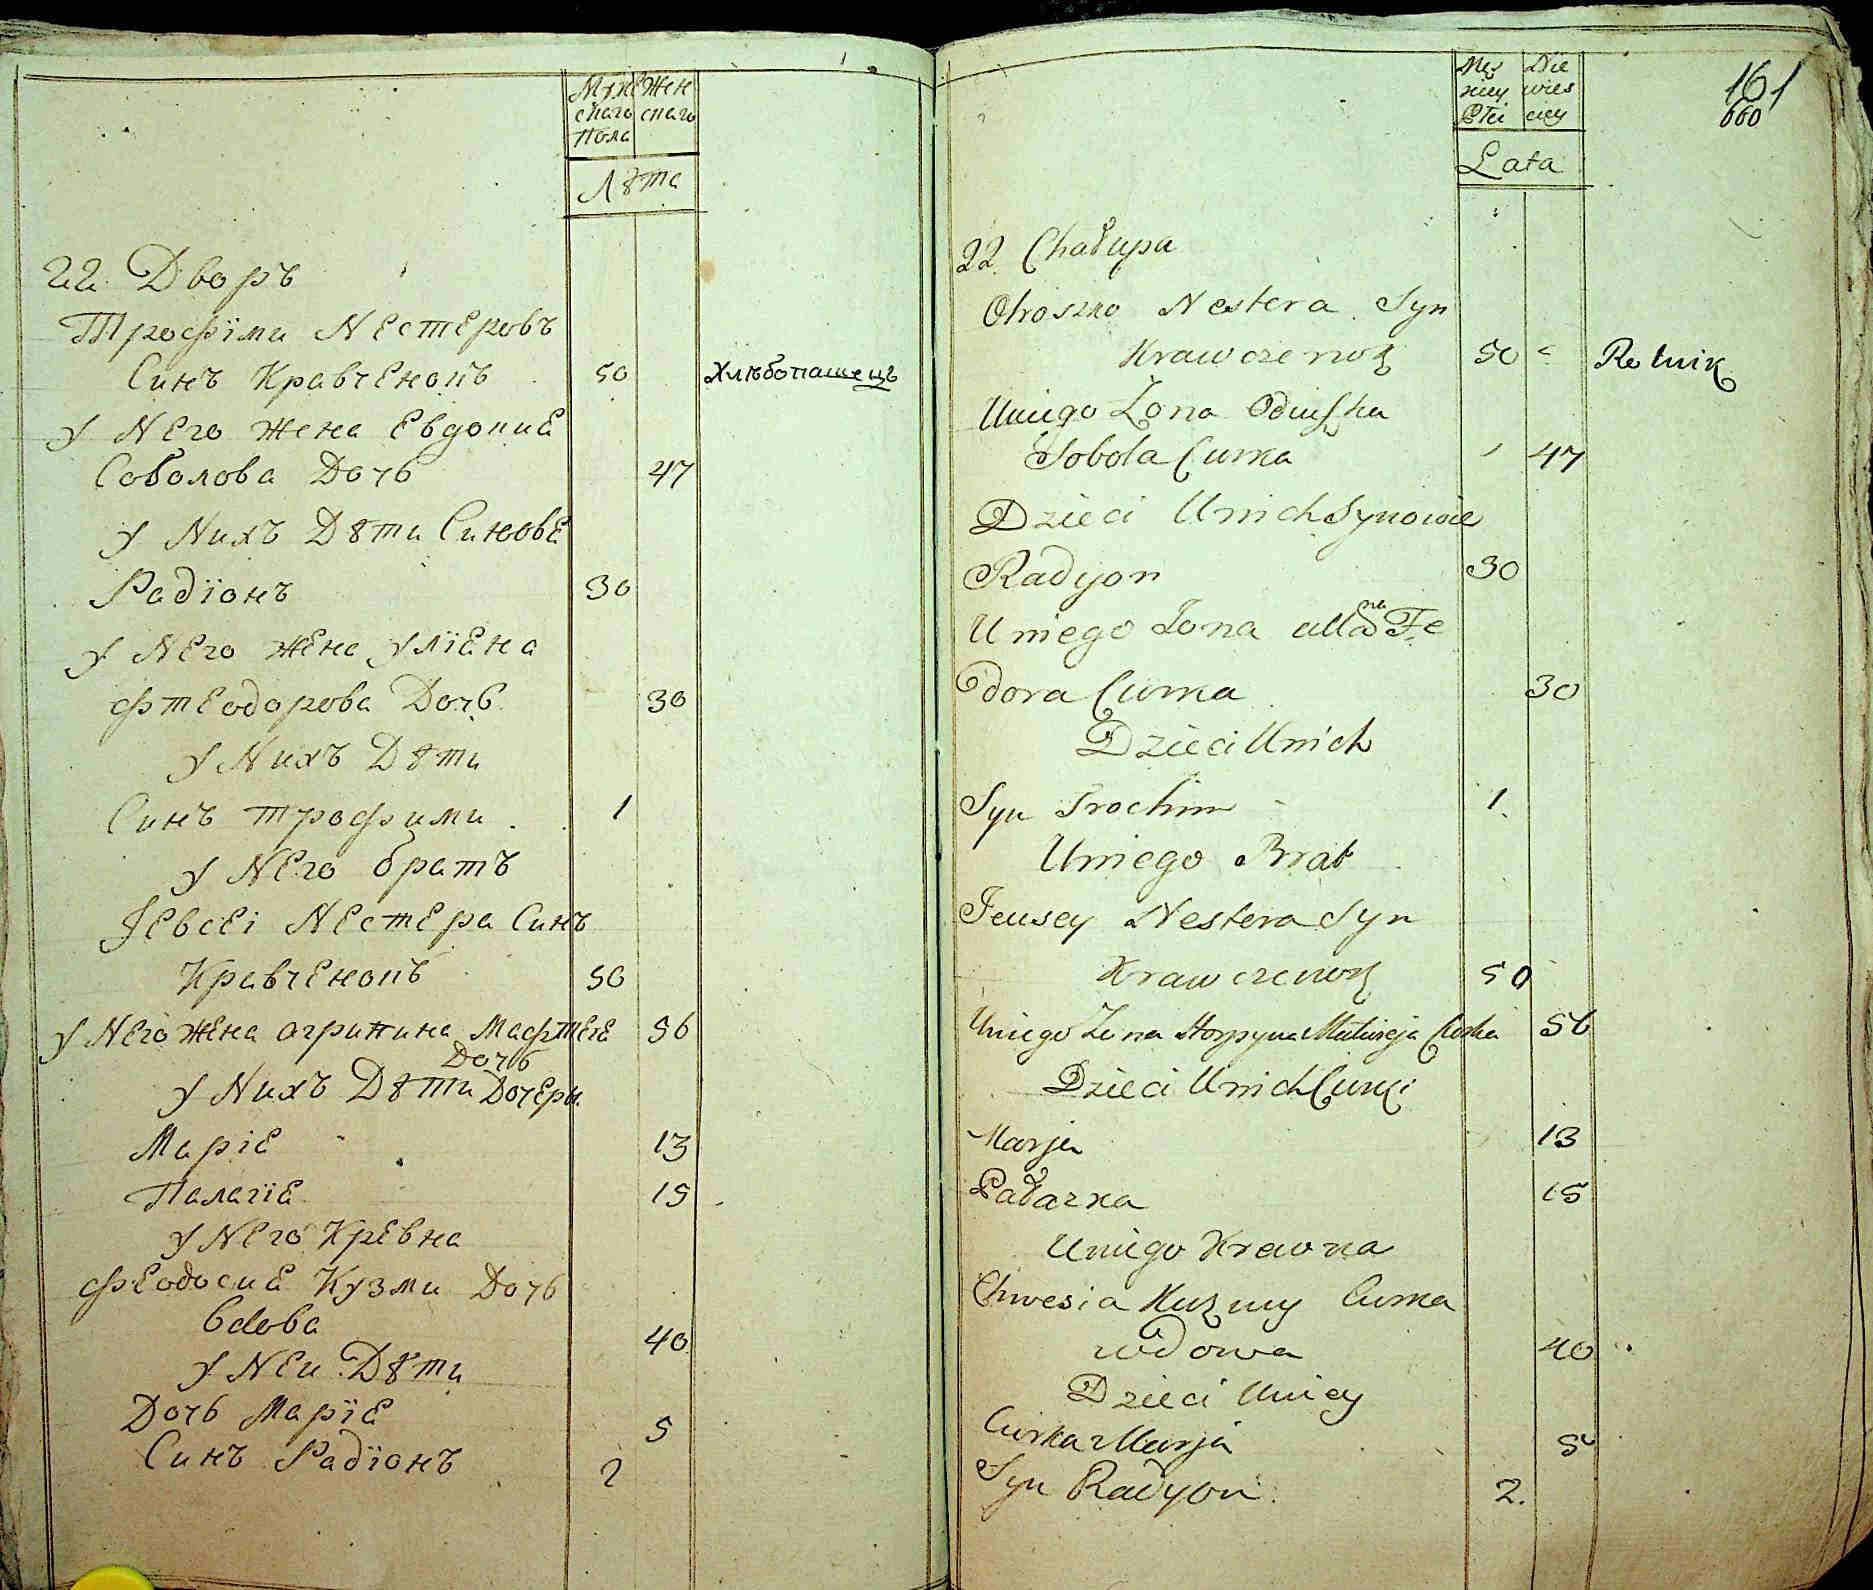 Мужескаго Женскаго
Пола
Лѣта
22. Дворъ
Трофїми Нестеровъ
Синъ Кравченокъ 50 Хлѣбопашецъ
У Него Жена Евдокие
Соболова Дочь 47
У Нихъ Дѣти Синове
Радїонъ 30
У Него Жена Улїена
Фтеодорова Дочь 30
У Нихъ Дѣти
Синъ Трофими 1
У Него братъ
Јевсеі Нестера Синъ
Кравченокъ 50
У Него Жена Агрипина Мафтеіе 56
Дочь
У Нихъ Дѣти Дочери
Маріе 13
Палагїе 15
У Него Кревна
Феодосие Кузми Дочь
Вдова 40
У Неи Дѣти
Дочь Марїе 5
Синъ Радїонъ 2
161
660
Męzkiey Niewiesciey
Płci
Lata
22. Chałupa
Otroszko Nestera Syn
Krawczenok 50 Rolnik
Uniego Zona Oduszka
Sobola Curka 47
Dzieci Unich Synowie
Radyon 30
Uniego Zona Fe
dora Curka 30
Dzieci Unich
Syn Trochim 1.
Uniego Brat
Jeusey Nestera Syn
Krawczenok 50
Uniego Zona Horpyna Matwieja Curka 56
Dzieci Unich Curki
Marja 13
Pałazka 15
Uniego Krewna
Chwesia Kuzmy Curka
wdowa 40
Dzieci Uniey
Curka Marja 5
Syn Radyon. 2.